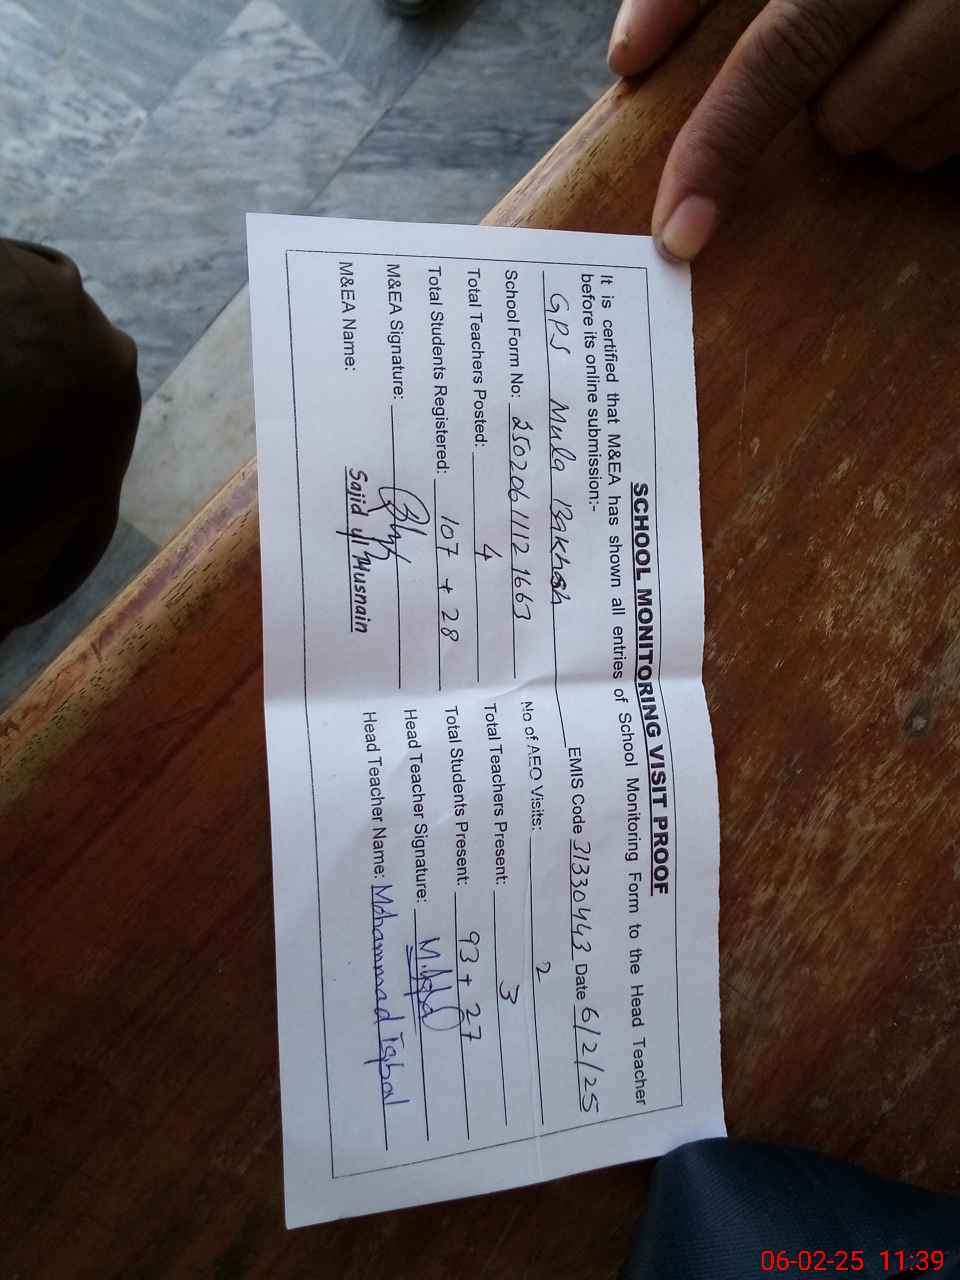 SCHOOL MONITORING VISIT PROOF
It is certified that M&EA has shown all entries of School Monitoring Form to the Head Teacher
before its online submission:-
GPS Mula Bakhsh EMIS Code 31330443 Date 6/2/25
School Form No: 250206 1112 1663 No of AEO Visits: 2
Total Teachers Posted: 4 Total Teachers Present: 3
Total Students Registered: 107 + 28 Total Students Present: 93 + 27
M&EA Signature: Head Teacher Signature: M. Iqbal
M&EA Name: Sajid ul Husnain Head Teacher Name: Mohammad Iqbal
06-02-25 11:39